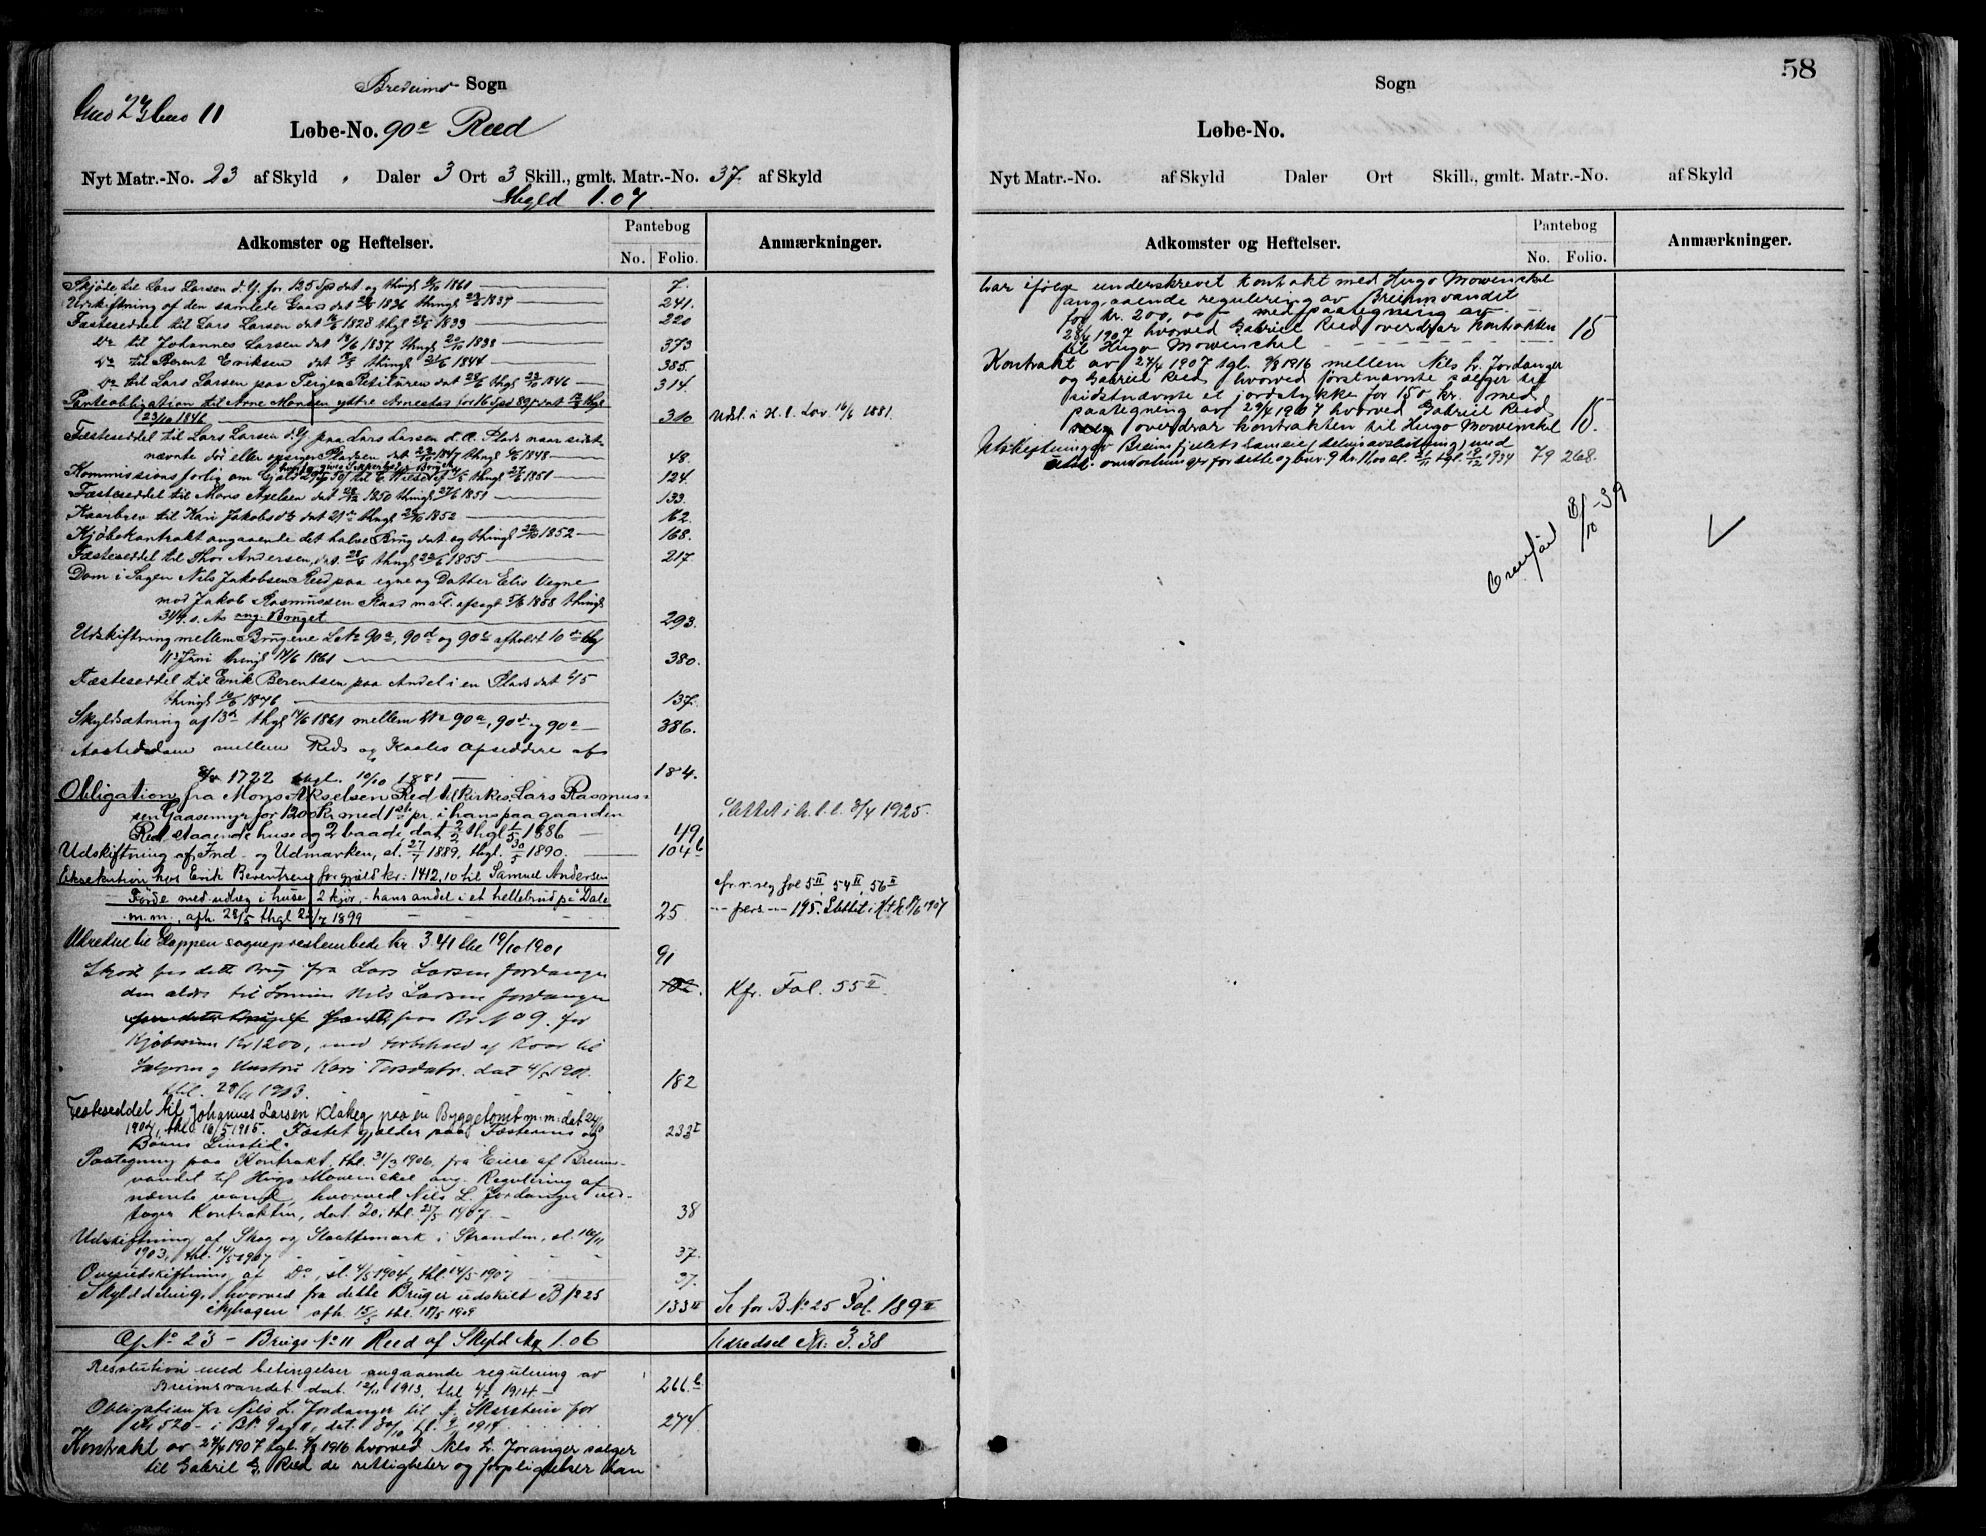 58
Breims Sogn
Gno 23 Bno 11
Løbe-No. 90e Reed
Nyt Matr.-No. 23 af Skyld Daler 3 Ort 3 Skill., gmlt. Matr.-No. 37 af Skyld
Skyld 1.07
Adkomster og Heftelser. Pantebog No. Folio. Anmærkninger.
Skjøde til Lars Larsen d. y. for 125 Spd dat og thingl 1861 7.
Udskiftning af den samlede Gaard dat 1836 thingl 1839 241.
Fæsteseddel til Lars Larsen dat 1828 thgl 1833 220
Do til Johannes Larsen dat 1837 thingl 1838 373
Do til Berent Eriksen dat thingl 1844 385.
Do til Lars Larsen paa Jørgen dat thgl 1846 314
Panteobligation til Arne Monsen ydtre Arnestad for 16 Spd 89 s dat thgl
23/10 1846 310 Udsl. i H. t. Lov 16/6 1881.
Fæsteseddel til Lars Larsen d. y. paa Lars Larsen d. Æ. Plads naar sidst-
nævnte dør eller opsiger Pladsen dat 1847 thingl 1848 48.
Kommissionsforlig om Gjæld thingl 27/5 1851 124.
Fæsteseddel til Mons Axelsen dat 1850 thingl 27/5 1851 133.
Kaarbrev til Kari Jakobsdtr dat 21de thngl 1852 162.
Kjøbekontrakt angaaende det halve Brug dat og thingl 1852 168.
Fæsteseddel til Thor Andersen, dat. thingl 22/6 1855 217.
Dom i Sagen Nils Jakobsen Reed paa egne og Datter Elis Vegne
mod Jakob Rasmussen Raad m. fl. afsagt 1858 thingl
s. A. ang. Bruget 293.
Udskiftning mellem Brugene L No 90a, 90d og 90e afholdt 10de og
11te Juni thingl 14/6 1861 380.
Fæsteseddel til Erik Berentsen paa Andel i en Plads dat 4/5
thingl 10/6 1876 137.
Skyldsætning af 13de thgl 14/6 1861 mellem L No 90a, 90d og 90e 386.
Aastedsdom mellem Reds og Kaales Opsiddere af
1722 thgl. 10/10 1881 184.
Obligation fra Mons Akselsen Red til Kirkes. Lars Rasmus-
sen Gaasemyr for 1200 kr med 1ste pr. i hans paa gaarden
Red staaende huse og 2 baade dat 2/2 thgl 1/5 1886 49 Slettet i h. t. l. 3/4 1925.
Udskiftning af Ind- og Udmarken, sl. 27/7 1889, thgl. 30/5 1890. 104b
Eksekution hos Erik Berentsen for gjæld kr. 1412,10 til Samuel Andersen
Førde med udlæg i huse, 2 kjør, hans andel i et hellebrud på Dale
m. m., afh. 28/5 thgl 1899 25
cfr. v. reg fol 5II, 54II, 56II
pers 195. Slettet i 1907
Udredsel til Gloppen sogneprestembede kr. 3.41 thl 19/10 1901 91
Skjøde paa dette Brug fra Lars Larsen Jordanger
den ældre til Sønnen Nils Larsen Jordanger 182. Kfr. Fol. 55I
paa Br No 9. for
Kjøbesum Kr 1200, med Forbehold af Kaar til
Sælgeren og Hustru Kari Tersdatr. dat 4/5 1901
thl. 28/11 1903. 182
Fæsteseddel til Johannes Larsen Klakeg paa en Byggetomt m. m. dat
1904, thl. 16/5 1905. Fæstet gjælder paa Fæsterens og
Børns Livstid. 233I
Paategning paa Kontrakt, thl. 31/3 1906, fra Eiere af Breims-
vandet til Hugo Mowinckel ang. Regulering af
nævnte vand, hvorved Nils L. Jordanger ved-
tager Kontrakten, dat. 20, thl. 25/5 1907. 38
Udskiftning af Skog og Slaattemark i Stranden, sl. 16/11
1903, thl. 14/5 1907 37.
Overudskiftning af Do, sl. 4/5 1904, thl. 14/5 1907 37.
Skylddeling, hvorved fra dette Brug er udskilt B No 25
Nyhagen afh. 15/5 thl. 18/5 1909 133II Se for B No 25 Fol. 189II
G No 23 - Brugs No 11 Reed af Skyld Mk 1.06 Udredsel Kr. 3.38
Resolution med betingelser angaaende regulering av
Breimsvandet dat. 12/11 1913, thl 1914. 266b
Obligation fr Nils L. Jordanger til J. Skarstein for
Kr 520 i B No 9 og 11, dat. 30/10 tgl. 1914 274
Kontrakt av 24/4 1907 tgl. 9/8 1916 hvorved Nils L. Joranger sælger
til Gabriel G. Reed de rettigheter og forpligtelser han
Sogn
Løbe-No.
Nyt Matr.-No. af Skyld Daler Ort Skill., gmlt. Matr.-No. af Skyld
Adkomster og Heftelser. Pantebog No. Folio. Anmærkninger.
har ifølge underskrevet kontrakt med Hugo Mowinckel
angaaende regulering av Breimsvandet
for kr. 200,00 med paategning av
29/4 1907 hvorved Gabriel Reed overdrar kontrakten
til Hugo Mowinckel 15
Kontrakt av 24/4 1907 tgl. 9/8 1916 mellem Nils L. Jordanger
og Gabriel Reed, hvorved førstnævnte sælger til
sidstnævnte et jordstykke for 150 kr. med
paategning av 29/4 1907 hvorved Gabriel Reed
overdrar kontrakten til Hugo Mowinckel 15.
Utskiftning av Breimfjellets sameie (delvis avslutning) med
utl. omkostninger for dette og bnr. 9 kr. 11,00 sl. tgl. 1934 79 268.
Overført 18/10 -39